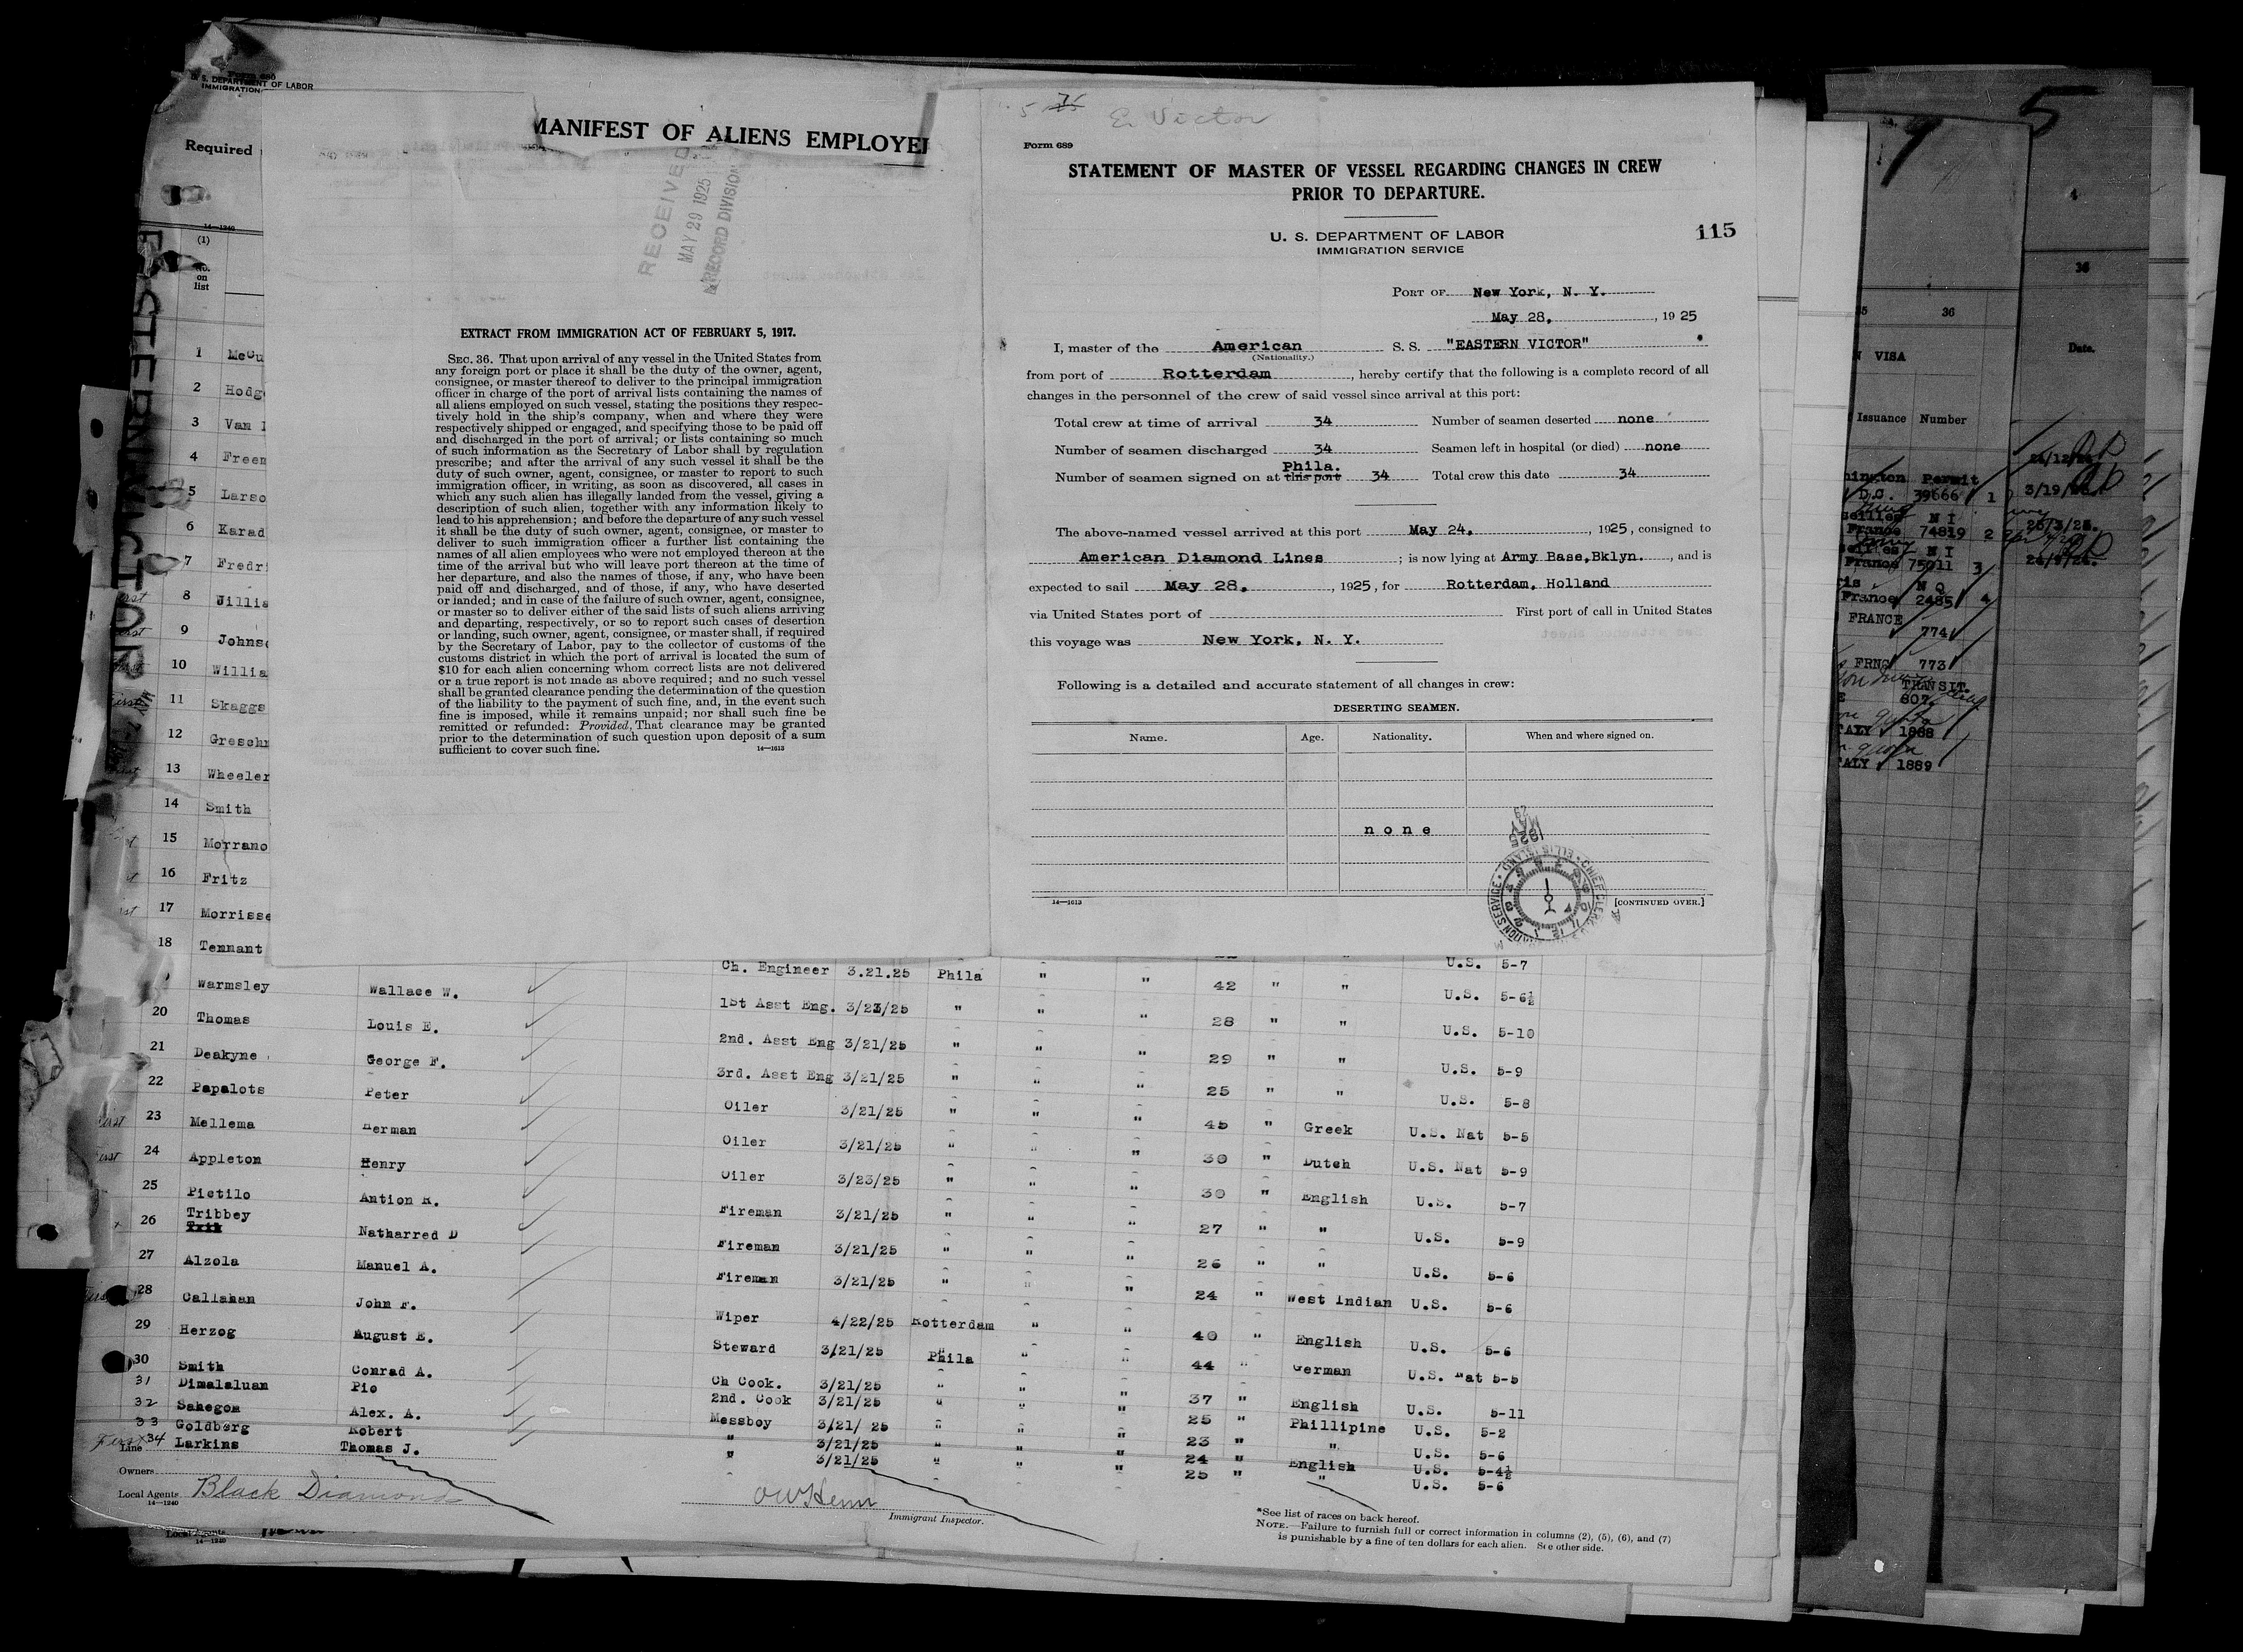 Form 680
U. S. DEPARTMENT OF LABOR
IMMIGRATION
Required
MANIFEST OF ALIENS EMPLOYE
RECEIVED
MAY 29 1925
RECORD DIVISION
14—1240
(1)
No.
on
list
EASTERN VICTOR
1 McGu
2 Hodg
3 Van
4 Freem
5 Larso
6 Karad
7 Fredri
8 Jillis
9 Johns
10 Willia
11 Skaggs
12 Greschn
13 Wheeler
14 Smith
15 Morrano
16 Fritz
17 Morrisse
18 Tennant
EXTRACT FROM IMMIGRATION ACT OF FEBRUARY 5, 1917.
SEC. 36. That upon arrival of any vessel in the United States from
any foreign port or place it shall be the duty of the owner, agent,
consignee, or master thereof to deliver to the principal immigration
officer in charge of the port of arrival lists containing the names of
all aliens employed on such vessel, stating the positions they respec-
tively hold in the ship's company, when and where they were
respectively shipped or engaged, and specifying those to be paid off
and discharged in the port of arrival; or lists containing so much
of such information as the Secretary of Labor shall by regulation
prescribe; and after the arrival of any such vessel it shall be the
duty of such owner, agent, consignee, or master to report to such
immigration officer, in writing, as soon as discovered, all cases in
which any such alien has illegally landed from the vessel, giving a
description of such alien, together with any information likely to
lead to his apprehension; and before the departure of any such vessel
it shall be the duty of such owner, agent, consignee, or master to
deliver to such immigration officer a further list containing the
names of all alien employees who were not employed thereon at the
time of the arrival but who will leave port thereon at the time of
her departure, and also the names of those, if any, who have been
paid off and discharged, and of those, if any, who have deserted
or landed; and in case of the failure of such owner, agent, consignee,
or master so to deliver either of the said lists of such aliens arriving
and departing, respectively, or so to report such cases of desertion
or landing, such owner, agent, consignee, or master shall, if required
by the Secretary of Labor, pay to the collector of customs of the
customs district in which the port of arrival is located the sum of
$10 for each alien concerning whom correct lists are not delivered
or a true report is not made as above required; and no such vessel
shall be granted clearance pending the determination of the question
of the liability to the payment of such fine, and, in the event such
fine is imposed, while it remains unpaid; nor shall such fine be
remitted or refunded: Provided, That clearance may be granted
prior to the determination of such question upon deposit of a sum
sufficient to cover such fine. 14—1613
E. Victor
Form 689
STATEMENT OF MASTER OF VESSEL REGARDING CHANGES IN CREW
PRIOR TO DEPARTURE.
U. S. DEPARTMENT OF LABOR
IMMIGRATION SERVICE
115
PORT OF New York, N. Y.
May 28, , 1925
I, master of the American S. S. "EASTERN VICTOR"
(Nationality.)
from port of Rotterdam , hereby certify that the following is a complete record of all
changes in the personnel of the crew of said vessel since arrival at this port:
Total crew at time of arrival 34 Number of seamen deserted none
Number of seamen discharged 34 Seamen left in hospital (or died) none
Phila.
Number of seamen signed on at this port 34 Total crew this date 34
The above-named vessel arrived at this port May 24, , 1925, consigned to
American Diamond Lines ; is now lying at Army Base,Bkln. , and is
expected to sail May 28, , 1925, for Rotterdam, Holland
via United States port of First port of call in United States
this voyage was New York, N. Y.
Following is a detailed and accurate statement of all changes in crew:
DESERTING SEAMEN.
Name. Age. Nationality. When and where signed on.
none
14—1613
[CONTINUED OVER.]
Ch. Engineer 3.21.25 Phila " " U.S. 5-7
Warmsley Wallace W. 1st Asst Eng. 3/23/25 " " " 42 " " U.S. 5-6½
20 Thomas Louis E. 2nd. Asst Eng 3/21/25 " " " 28 " " U.S. 5-10
21 Deakyne George F. 3rd. Asst Eng 3/21/25 " " " 29 " " U.S. 5-9
22 Papalots Peter Oiler 3/21/25 " " " 25 " " U.S. 5-8
23 Mellema Herman Oiler 3/21/25 " " " 45 " Greek U.S. Nat 5-5
24 Appleton Henry Oiler 3/23/25 " " " 30 " Dutch U.S. Nat 5-9
25 Pietilo Antion R. Fireman 3/21/25 " " " 30 " English U.S. 5-7
26 Tribbey Natharred D Fireman 3/21/25 " " " 27 " " U.S. 5-9
27 Alzola Manuel A. Fireman 3/21/25 " " " 26 " " U.S. 5-6
28 Callahan John F. Wiper 4/22/25 Rotterdam " " 24 " West Indian U.S. 5-6
29 Herzog August E. Steward 3/21/25 Phila " " 40 " English U.S. 5-6
30 Smith Conrad A. Ch Cook. 3/21/25 " " " 44 " German U.S. Nat 5-5
31 Dimalaluan Pio 2nd. Cook 3/21/25 " " " 37 " English U.S. 5-11
32 Sahegom Alex. A. Messboy 3/21/ 25 " " " 25 " Phillipine U.S. 5-2
33 Goldberg Robert " 3/21/25 " " " 23 " " U.S. 5-6
First 34 Larkins Thomas J. " 3/21/25 " " " 24 " English U.S. 5-4½
25 " " U.S. 5-6
Line
Owners
Local Agents Black Diamond
14—1240
Immigrant Inspector.
*See list of races on back hereof.
NOTE.—Failure to furnish full or correct information in columns (2), (5), (6), and (7)
is punishable by a fine of ten dollars for each alien. See other side.
Local Agents
14—1240
5
36
VISA
Issuance Number
Permit
D.C. 39666 1
N I
France 74819 2
N I
France 75011 3
N Q
France 2485 4
FRANCE
774
FRNG 773
TRANSIT.
607
1888
1889
4
36
Date.
3/19/